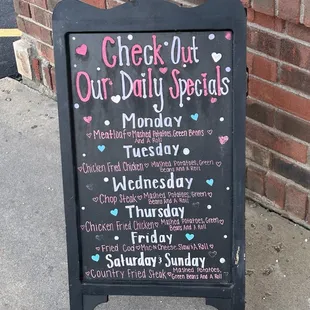 Check Out
Our Daily Specials
Monday
Meatloaf Mashed Potatoes, Green Beans
And A Roll
Tuesday
Chicken Fried Chicken Mashed Potatoes, Green
Beans And A Roll
Wednesday
Chop Steak Mashed Potatoes, Green
Beans And A Roll
Thursday
Chicken Fried Chicken Mashed Potatoes, Green
Beans And A Roll
Friday
Fried Cod Mac N Cheese, Slaw & Roll
Saturday & Sunday
Country Fried Steak Mashed Potatoes,
Green Beans And A Roll